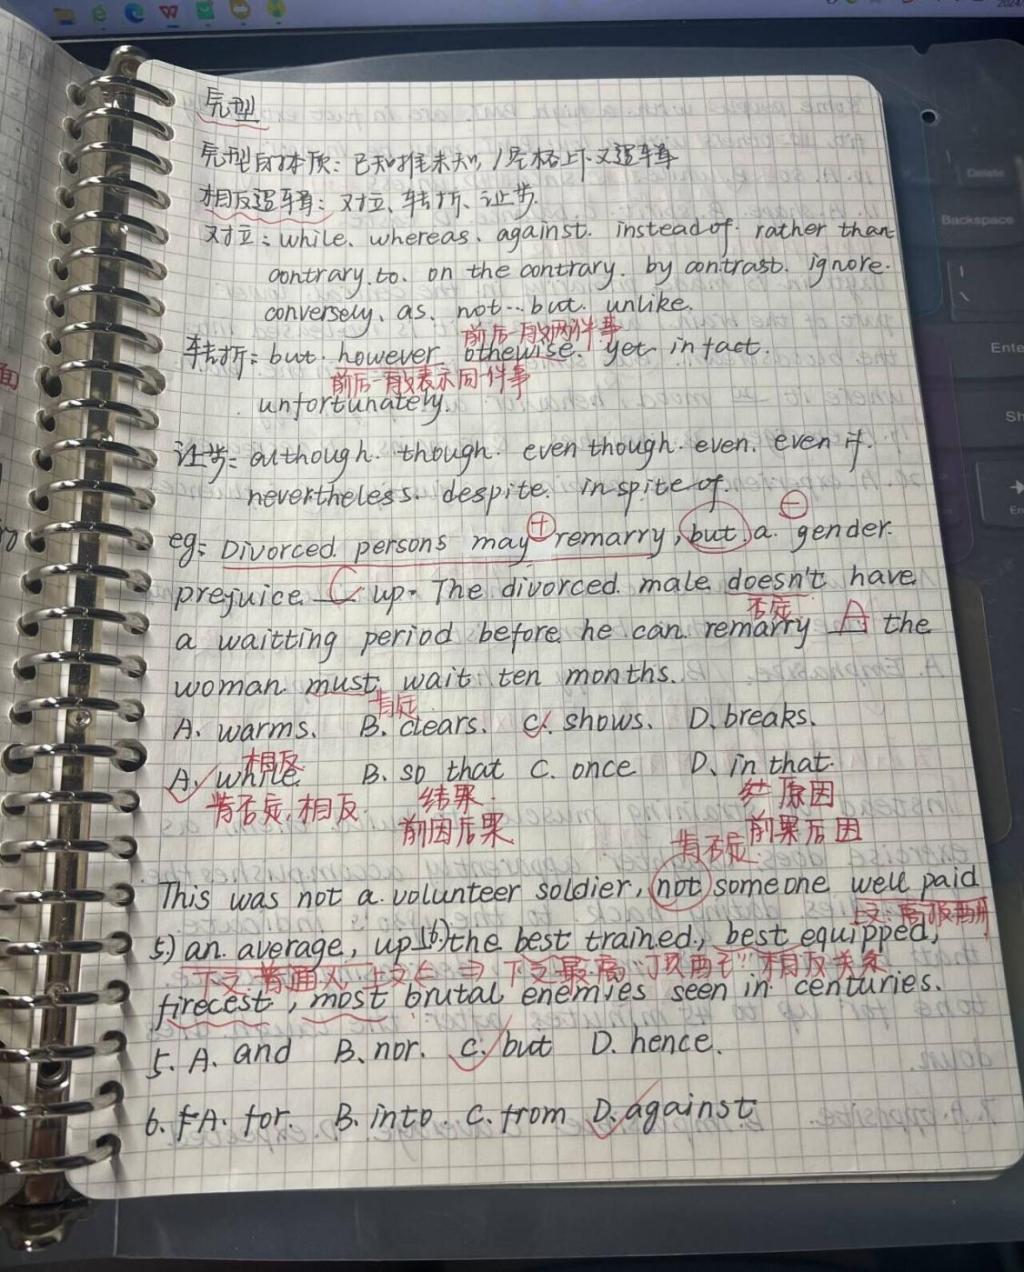 完型
完型的本质：已知推未知，/ 严格上下文逻辑
相反逻辑：对立、转折、让步.
对立：while、whereas、against. instead of. rather than
contrary.to. on the contrary. by contrast. ignore.
conversely、as、not…but. unlike.
前后一般两件事
转折：but. however. othewise. yet. in fact.
前后一般表示同一件事
unfortunately.
让步：although. though. even though. even. even if.
nevertheless. despite. in spite of.
+ −
eg: Divorced persons may remarry, but a gender.
prejuice C up. The divorced male doesn't have
否定
a waitting period before he can remarry A the
woman must wait ten months.
肯定
A. warms. B. clears. C. shows. D. breaks.
相反
A. while B. so that C. once D. in that.
肯否定,相反. 结果. 原因
前因后果 前果后因
肯否定
This was not a volunteer soldier, not someone well paid
上文高报酬
5) an average, up 6) the best trained, best equipped,
下文普通人 上文 下文最高 相反关系
firecest, most brutal enemies seen in centuries.
5. A. and B. nor. C. but D. hence.
6. A. for. B. into C. from D. against
Delete
Backspace
Ente
Sh
En
面